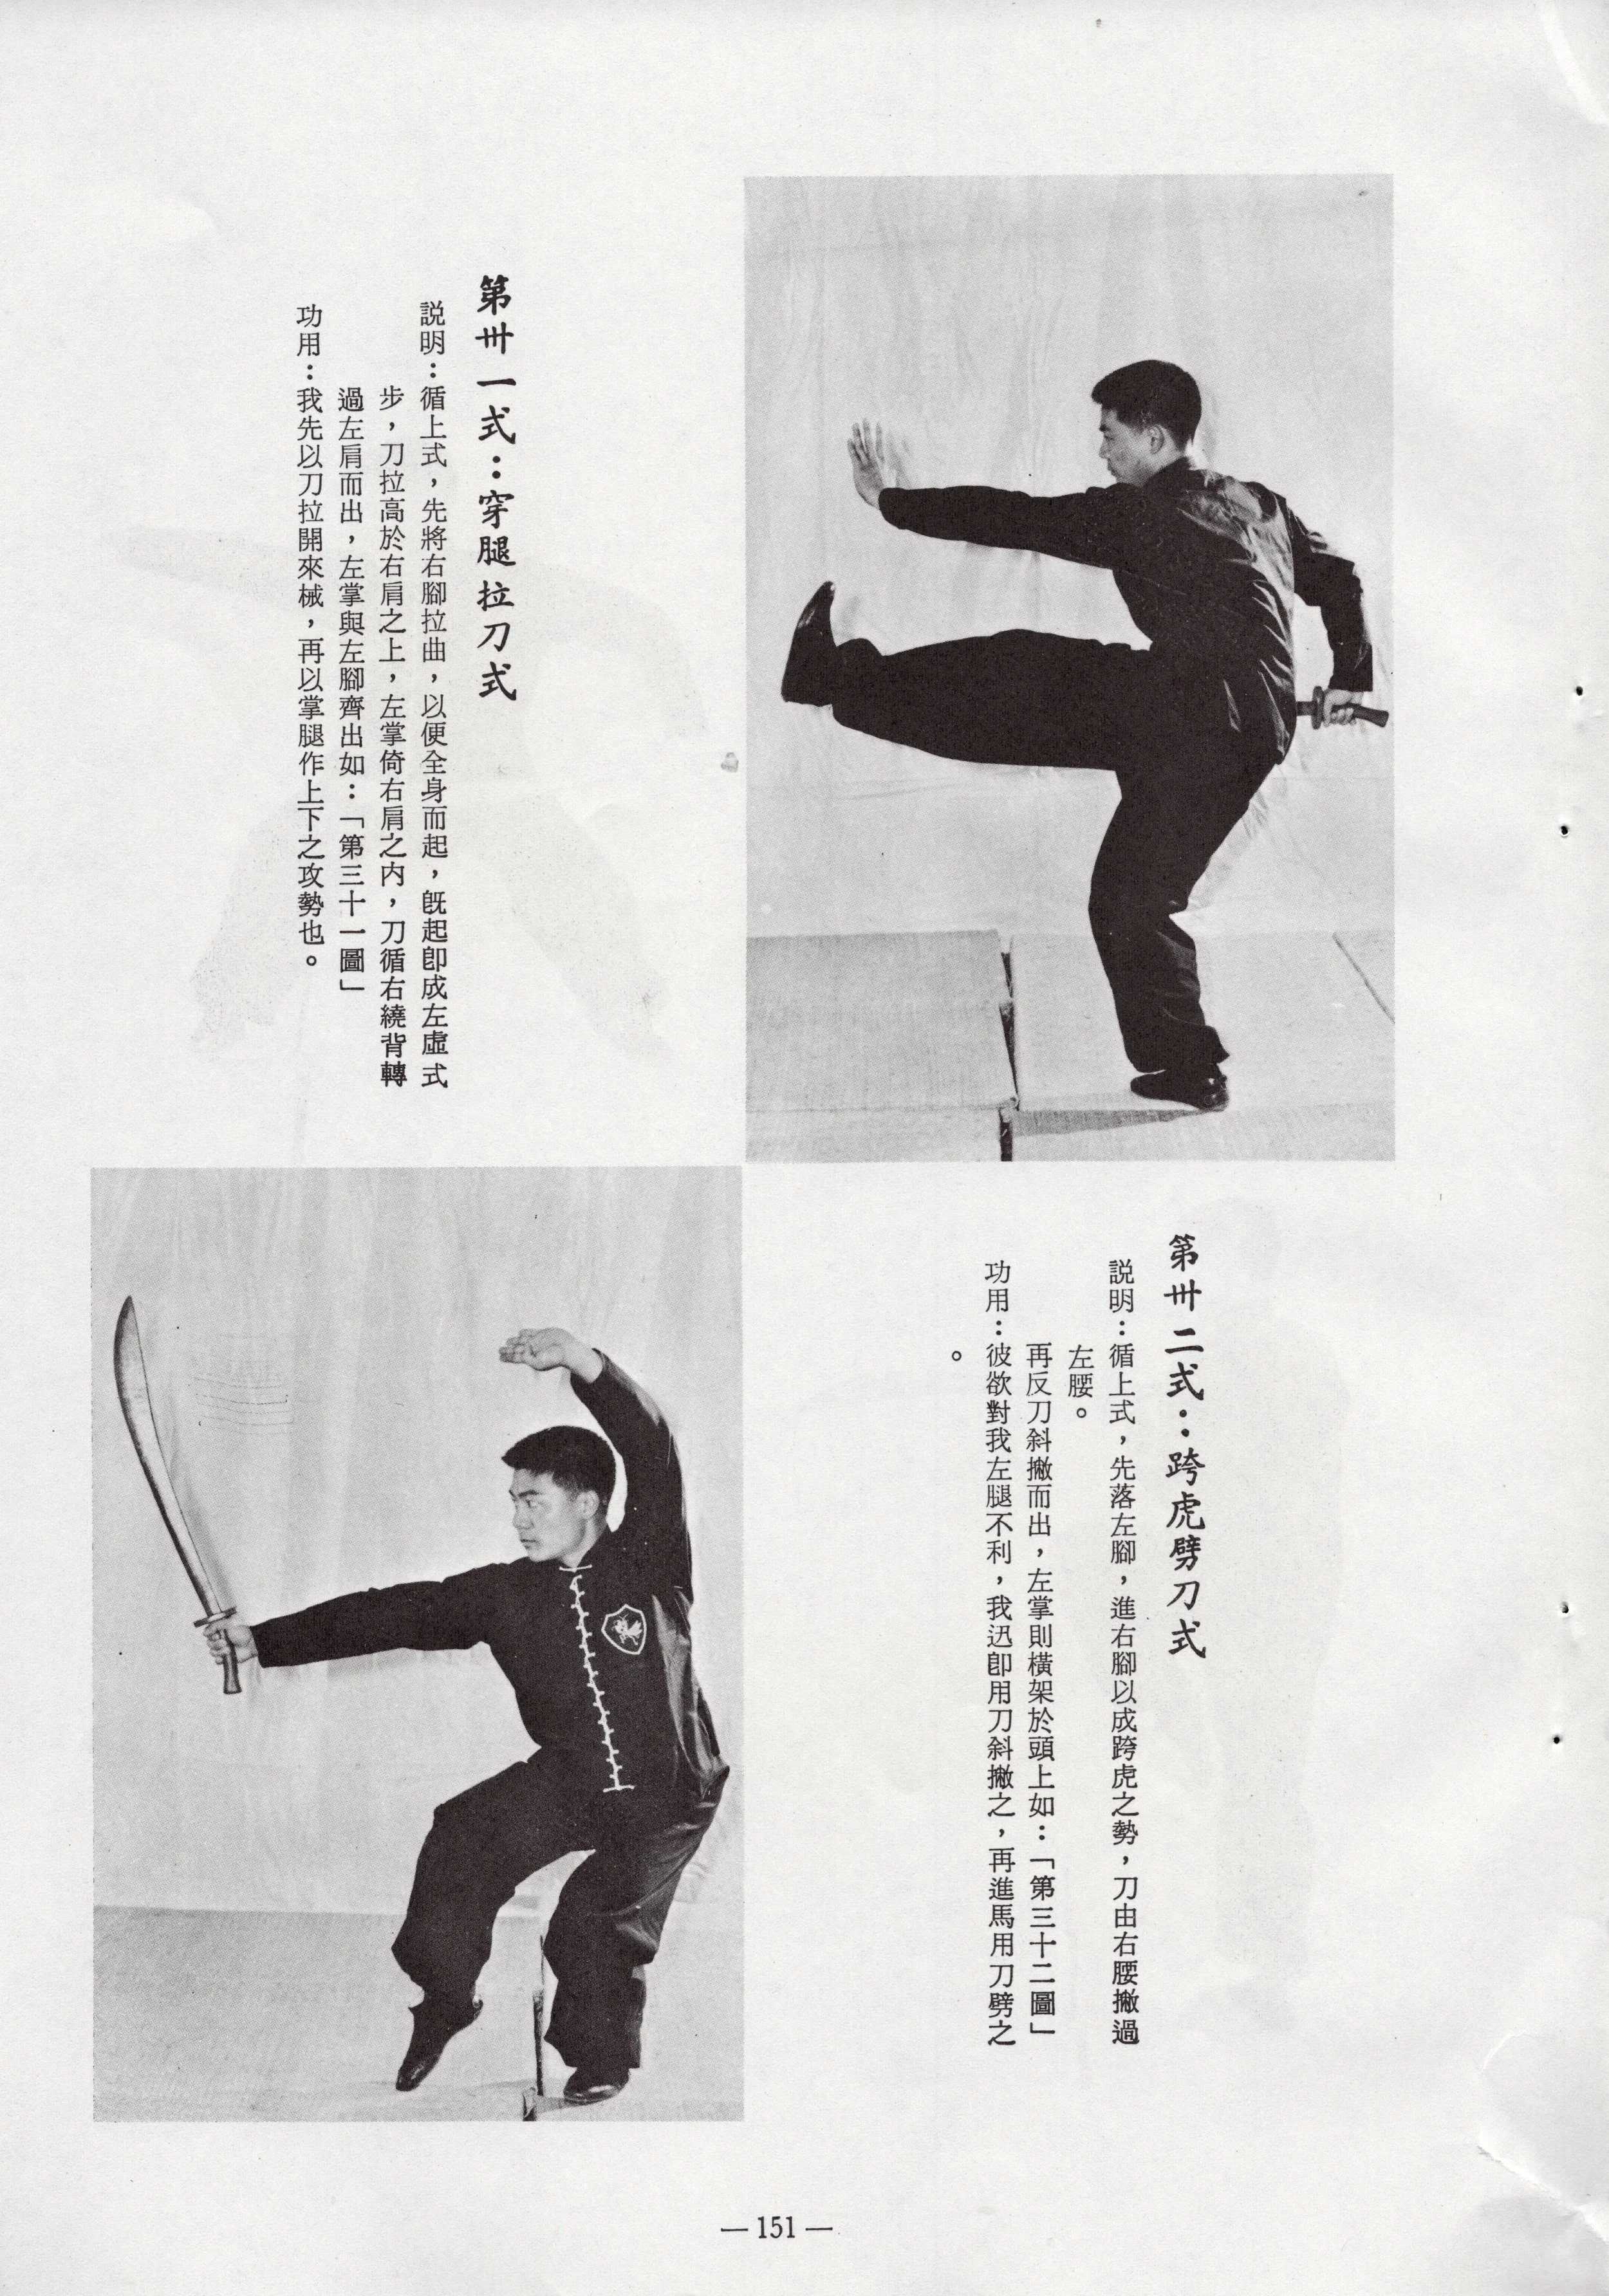 第卅一式：穿腿拉刀式
説明：循上式，先將右腳拉曲，以便全身而起，旣起卽成左虛式
步，刀拉高於右肩之上，左掌倚右肩之内，刀循右繞背轉
過左肩而出，左掌與左腳齊出如：「第三十一圖」
功用：我先以刀拉開來械，再以掌腿作上下之攻勢也。
第卅二式：跨虎劈刀式
説明：循上式，先落左腳，進右腳以成跨虎之勢，刀由右腰撇過
左腰。
再反刀斜撇而出，左掌則橫架於頭上如：「第三十二圖」
功用：彼欲對我左腿不利，我迅卽用刀斜撇之，再進馬用刀劈之
。
— 151 —